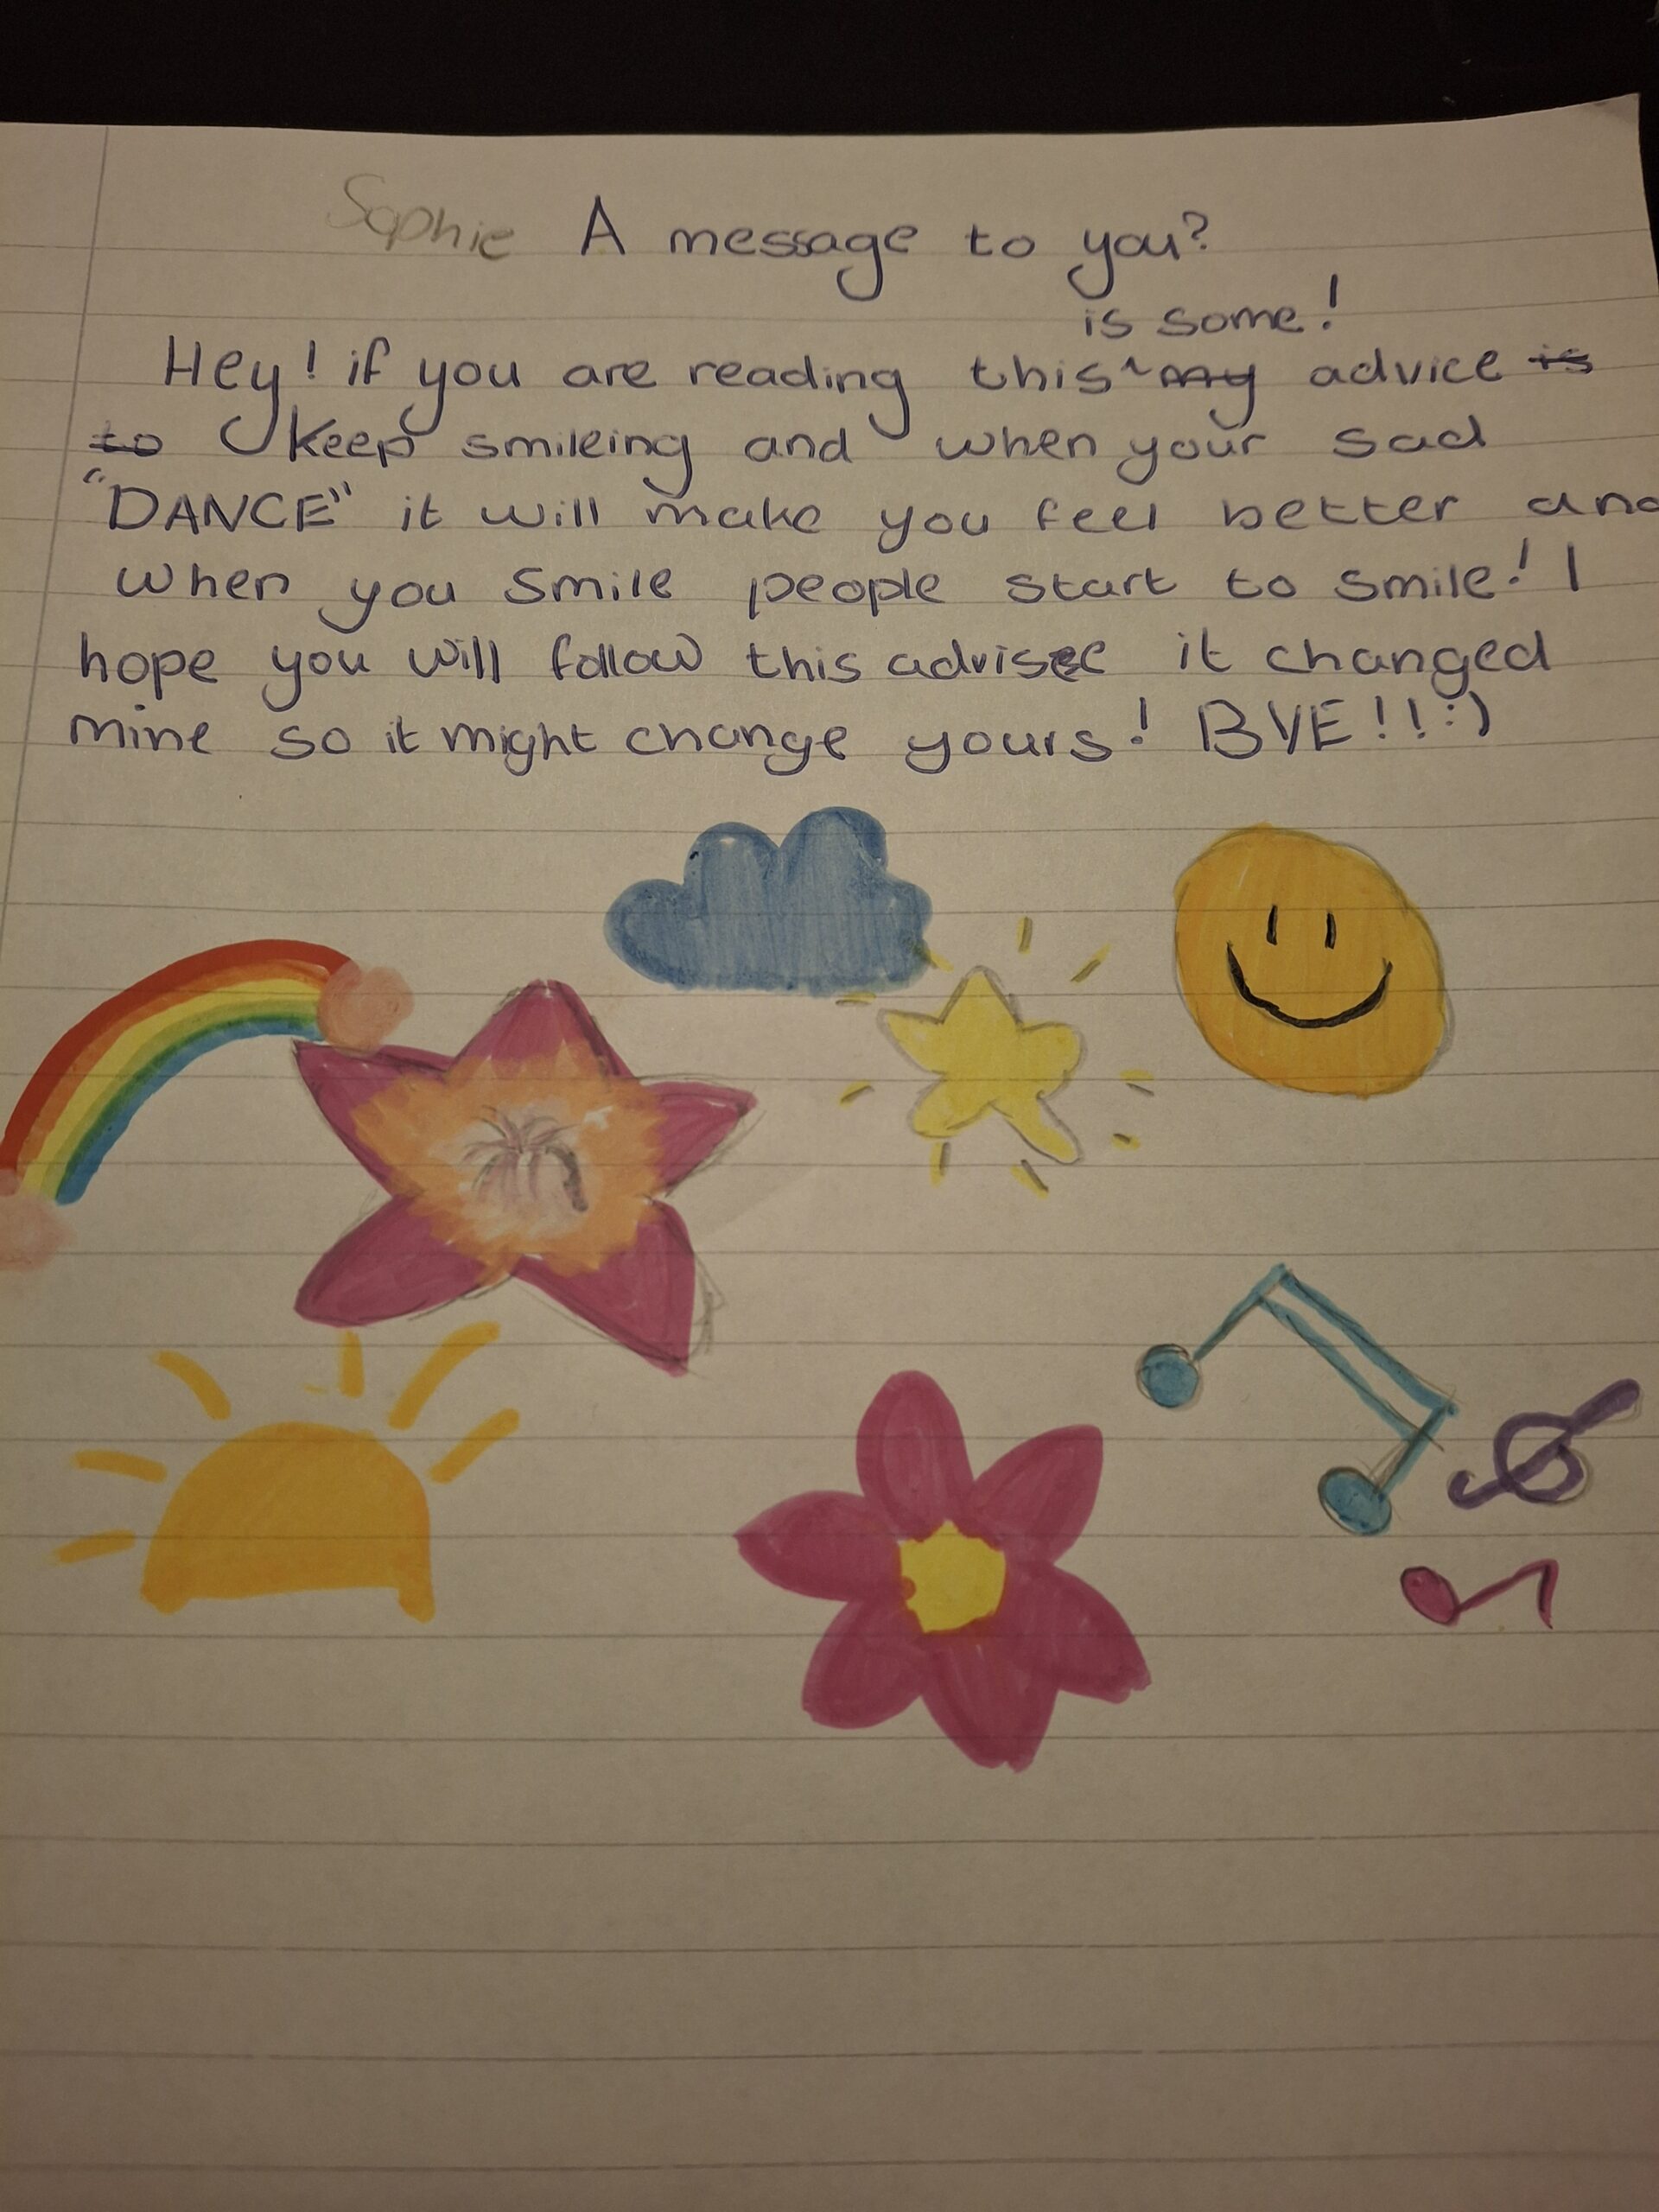 Sophie A message to you?
is some!
Hey! if you are reading this ^ my advice is
to keep smileing and when your sad
"DANCE" it will make you feel better and
when you smile people start to smile! I
hope you will follow this advise it changed
mine so it might change yours! BYE!!:)